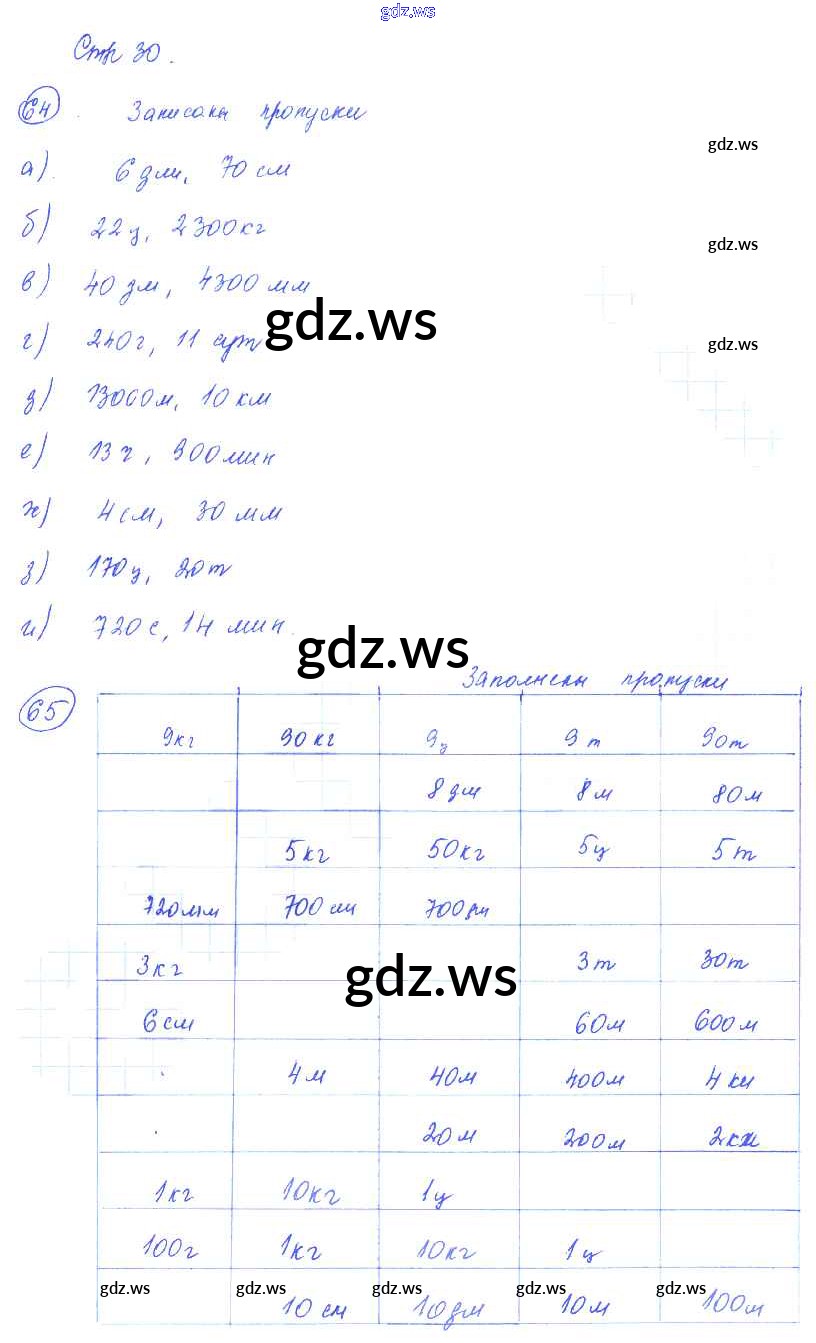 gdz.ws
Стр 30.
64. Записаны пропуски
gdz.ws
а). 6 дм, 70 см
б) 22 ц, 2300 кг
gdz.ws
в) 40 дм, 4300 мм
gdz.ws
г) 240 г, 11 сут
gdz.ws
д) 13000 м, 10 км
е) 13 ч, 900 мин
ж) 4 см, 30 мм
з) 170 ц, 20 т
и) 720 с, 14 мин.
gdz.ws
65 Заполнены пропуски
9 кг 90 кг 9 ц 9 т 90 т
8 дм 8 м 80 м
5 кг 50 кг 5 ц 5 т
720 мм 700 см 700 дм
gdz.ws
3 кг 3 т 30 т
6 см 60 м 600 м
4 м 40 м 400 м 4 км
20 м 200 м 2 км
1 кг 10 кг 1 ц
100 г 1 кг 10 кг 1 ц
gdz.ws gdz.ws gdz.ws gdz.ws gdz.ws
10 см 10 дм 10 м 100 м